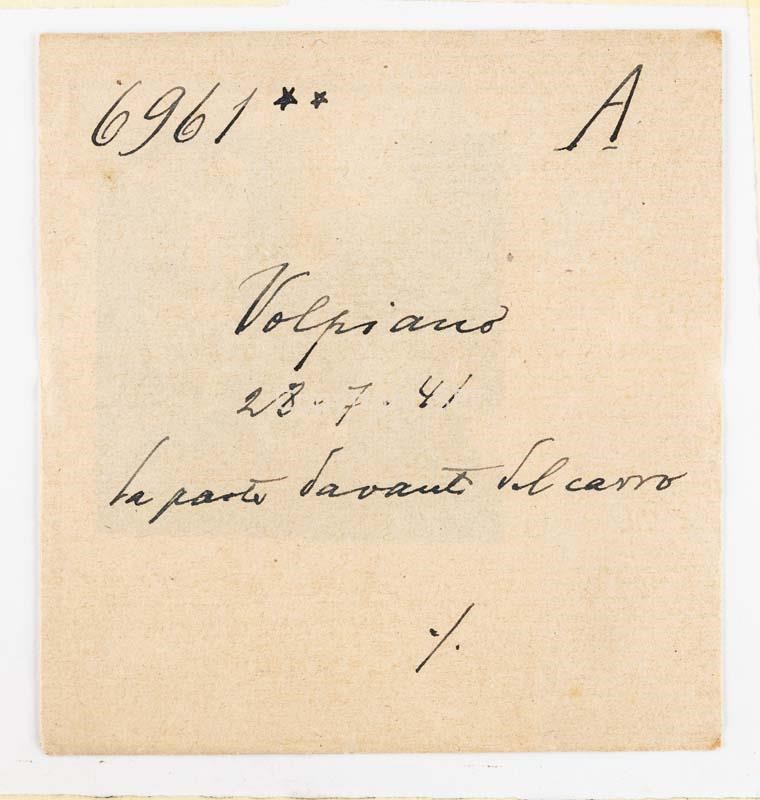 6961** A
Volpiano
28-7-41
la parte davanti del carro
./.